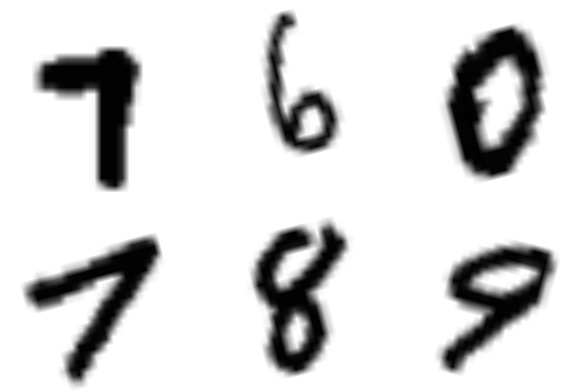 7 6 0
7 8 9